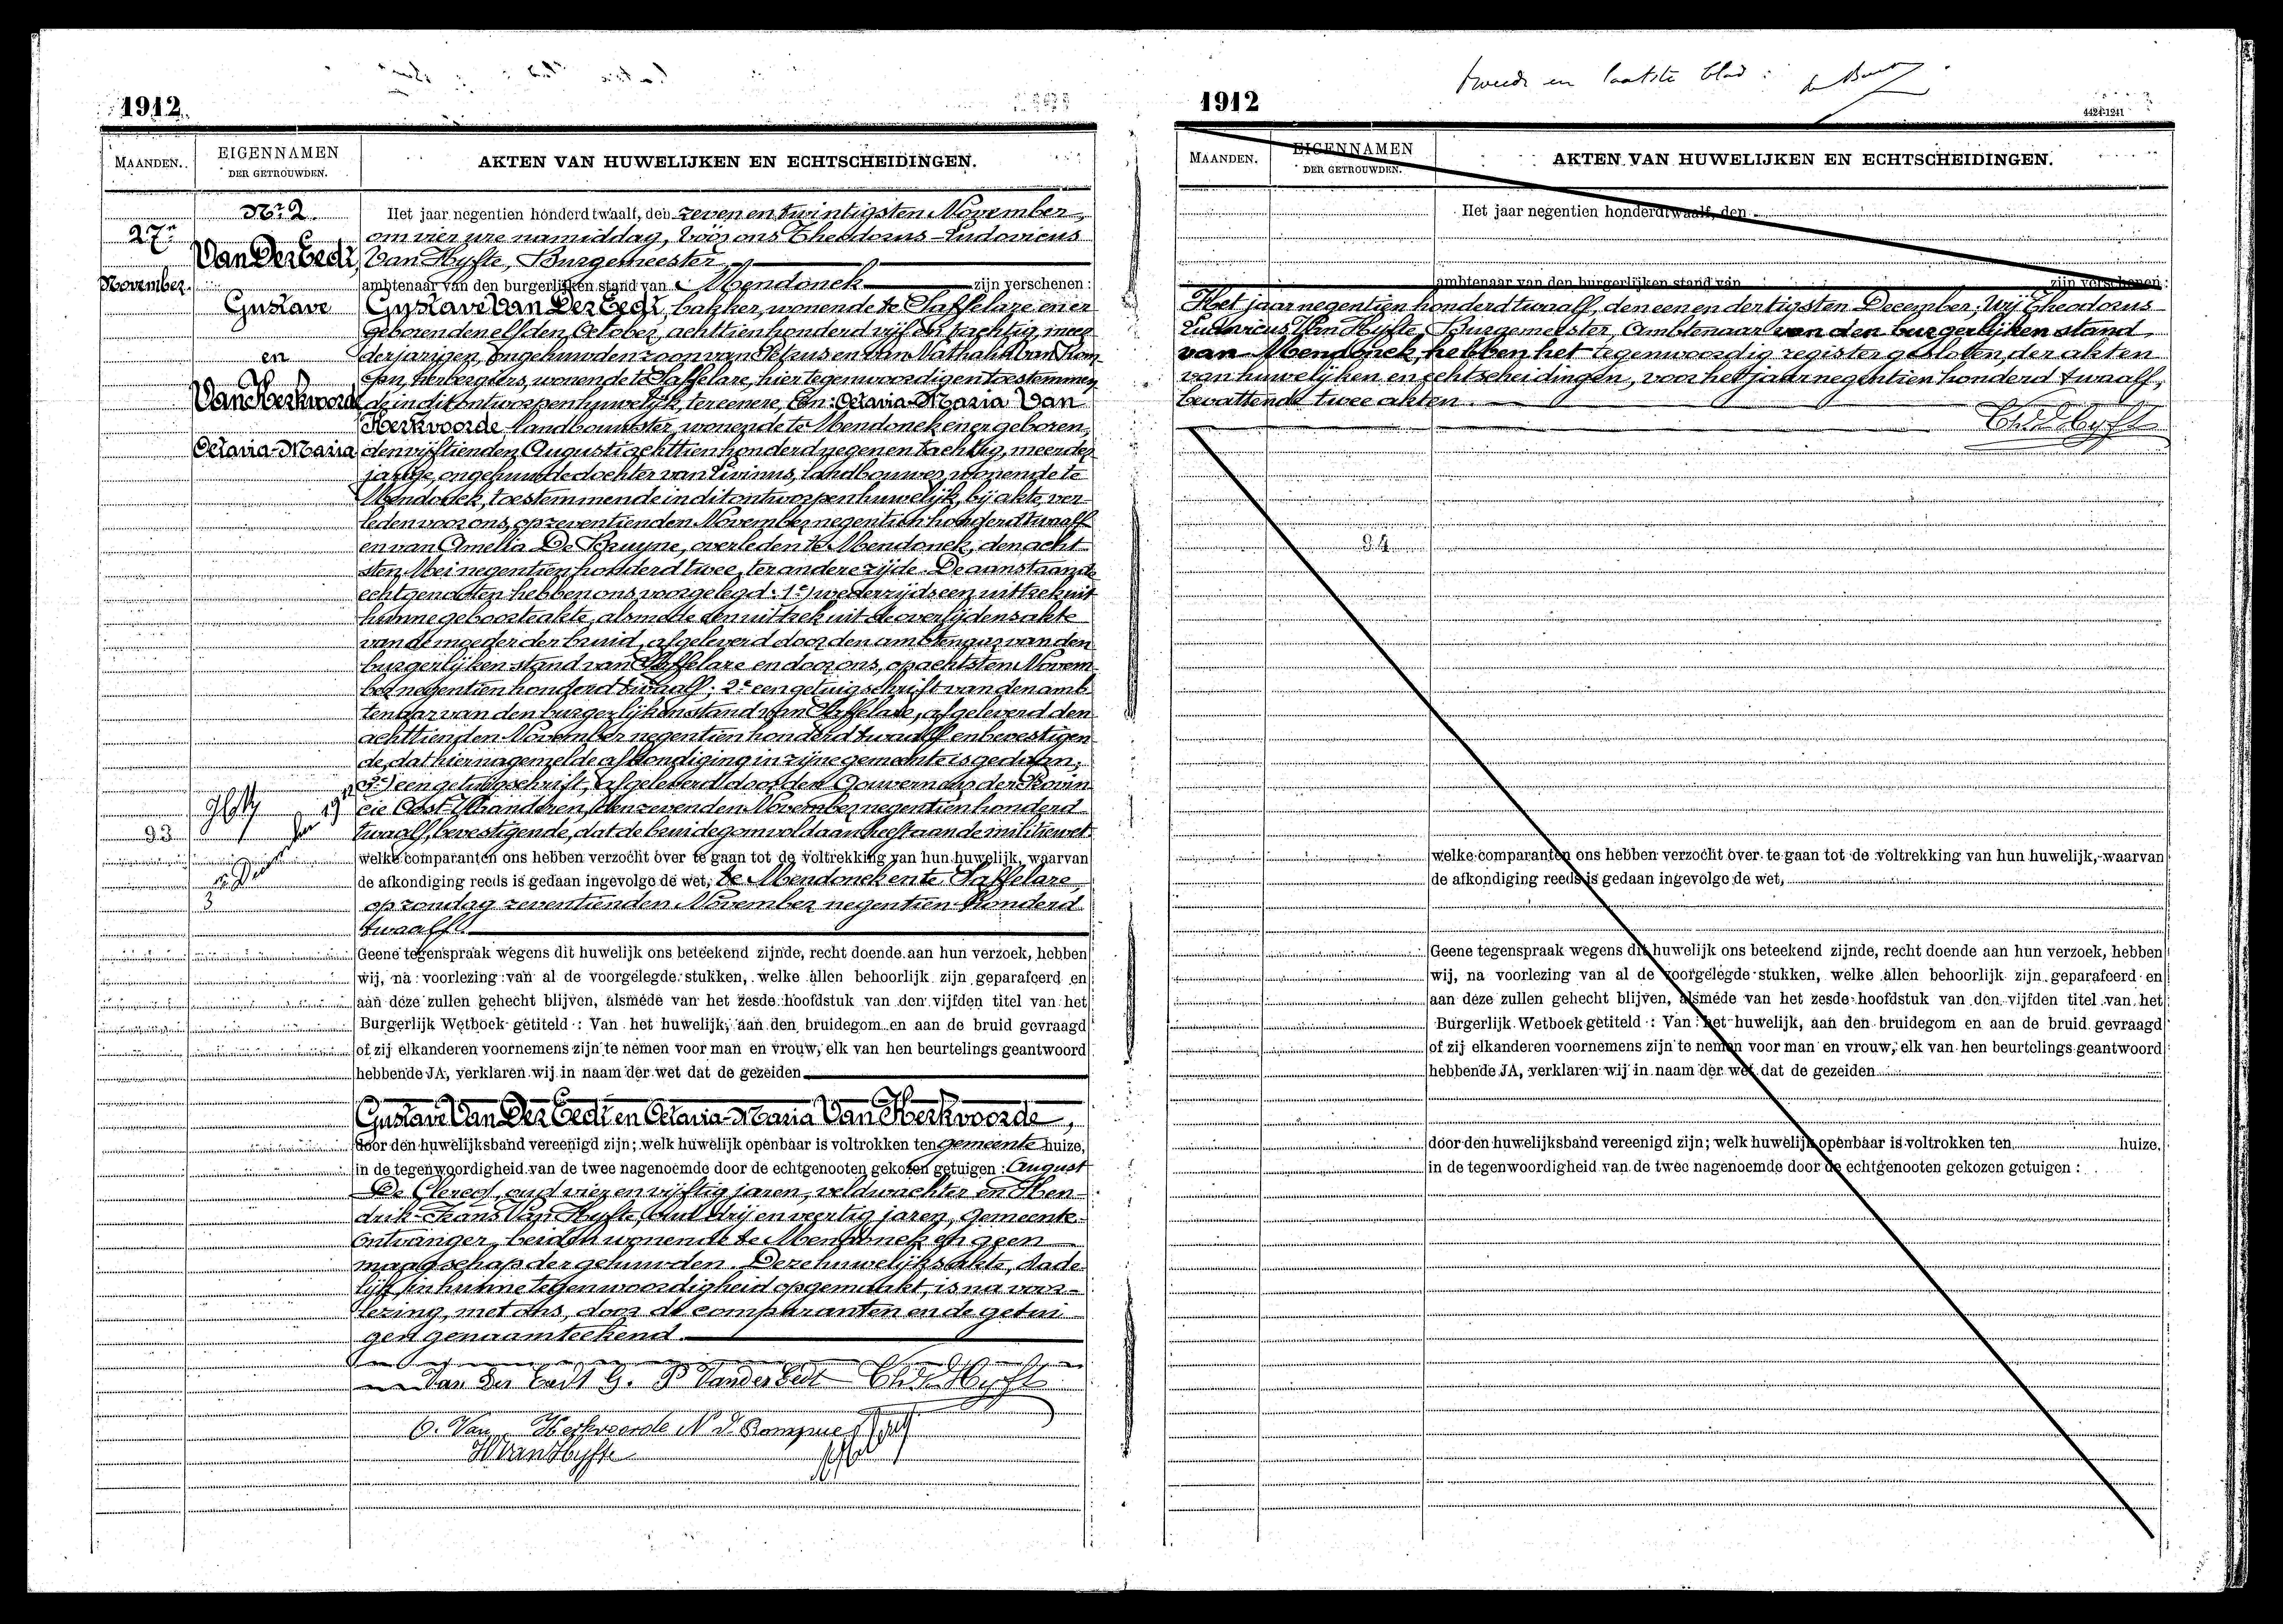 1912
MAANDEN.
EIGENNAMEN
DER GETROUWDEN.
AKTEN VAN HUWELIJKEN EN ECHTSCHEIDINGEN.
Nr 2.
27n
November.
Van Der Eedt,
Gustave
en
Van Herkvoorde
Octavia-Maria
93
Het jaar negentien honderd twaalf, den zeven en twintigsten November,
om vier ure namiddag, vóór ons Theodorus-Ludovicus
Van Hyfte, Burgemeester
ambtenaar van den burgerlijken stand van Mendonck zijn verschenen:
Gustave Van Der Eedt, bakker, wonende te Saffelare en er
geboren den elfden October achttien honderd vijf en tachtig, meer
derjarigen, ongehuwden zoon van Petrus en van Nathalie Van Rom
puy, herbergiers, wonende te Saffelare, hier tegenwoordig en toestemmen
de in dit ontworpen huwelijk, ter eenere, En: Octavia-Maria Van
Herkvoorde landbouwster, wonende te Mendonck en er geboren
den vijftienden Augusti achttien honderd negen en tachtig, meerder
jarige, ongehuwde dochter van Livinus, landbouwer, wonende te
Mendonck, toestemmende in dit ontworpen huwelijk, bij akte ver
leden voor ons, op zeventienden November negentien honderd twaalf
en van Amelia De Bruyne, overleden te Mendonck, den acht
sten Mei negentien honderd twee, ter andere zijde. De aanstaande
echtgenooten hebben ons voorgelegd: 1e) wederzijds een uittrek uit
hunne geboorteakte, alsmede een uittrek uit de overlijdensakte
van de moeder der bruid, afgeleverd door den ambtenaar van den
burgerlijken stand van Saffelare en door ons, op achtsten Novem
ber negentien honderd twaalf; 2e een getuigschrift van den amb
tenaar van den burgerlijken stand van Saffelare, afgeleverd den
achttienden November negentien honderd twaalf en bevestigen
de, dat hiernagemelde afkondiging in zijne gemeente is gedaan;
3e) een getuigschrift, afgeleverd door den Gouverneur der Provin
cie Oost-Vlaanderen, den zevenden November negentien honderd
twaalf, bevestigende, dat de bruidegom voldaan heeft aan de militiewet
welke comparanten ons hebben verzocht over te gaan tot de voltrekking van hun huwelijk, waarvan
de afkondiging reeds is gedaan ingevolge de wet, te Mendonck en te Saffelare,
op zondag zeventienden November negentien honderd
twaalf.
Geene tegenspraak wegens dit huwelijk ons beteekend zijnde, recht doende aan hun verzoek, hebben
wij, na voorlezing van al de voorgelegde stukken, welke allen behoorlijk zijn geparafeerd en
aan deze zullen gehecht blijven, alsmede van het zesde hoofdstuk van den vijfden titel van het
Burgerlijk Wetboek getiteld: Van het huwelijk, aan den bruidegom en aan de bruid gevraagd
of zij elkanderen voornemens zijn te nemen voor man en vrouw, elk van hen beurtelings geantwoord
hebbende JA, verklaren wij in naam der wet dat de gezeiden
Gustave Van Der Eedt en Octavia-Maria Van Herkvoorde,
door den huwelijksband vereenigd zijn; welk huwelijk openbaar is voltrokken ten gemeente huize,
in de tegenwoordigheid van de twee nagenoemde door de echtgenooten gekozen getuigen: August
De Clercq, oud vier en vijftig jaren, veldwachter en Hen
drik-Frans Van Hyfte, oud drij en veertig jaren, gemeente
ontvanger, beiden wonende te Mendonck en geen
maagschap der gehuwden. Deze huwelijksakte, dade
lijk in hunne tegenwoordigheid opgemaakt, is na voor-
lezing, met ons, door de comparanten en de getui
gen genaamteekend.
Van Der Eedt G. P Van der Eedt Th. V. Hyfte
O. Van Herkvoorde N. V. Rompuy
H Van Hyfte
tweede en laatste blad:
1912
4424-1241
MAANDEN.
EIGENNAMEN
DER GETROUWDEN.
AKTEN VAN HUWELIJKEN EN ECHTSCHEIDINGEN.
Het jaar negentien honderd twaalf, den
ambtenaar van den burgerlijken stand van zijn verschenen:
Het jaar negentien honderd twaalf, den een en dertigsten December, Wij Theodorus
Ludovicus Van Hyfte, Burgemeester, Ambtenaar van den burgerlijken stand
van Mendonck, hebben het tegenwoordig register gesloten, der akten
van huwelijken en echtscheidingen, voor het jaar negentien honderd twaalf,
bevattende twee akten.
Th. V. Hyfte
94
welke comparanten ons hebben verzocht over te gaan tot de voltrekking van hun huwelijk, waarvan
de afkondiging reeds is gedaan ingevolge de wet,
Geene tegenspraak wegens dit huwelijk ons beteekend zijnde, recht doende aan hun verzoek, hebben
wij, na voorlezing van al de voorgelegde stukken, welke allen behoorlijk zijn geparafeerd en
aan deze zullen gehecht blijven, alsmede van het zesde hoofdstuk van den vijfden titel van het
Burgerlijk Wetboek getiteld: Van het huwelijk, aan den bruidegom en aan de bruid gevraagd
of zij elkanderen voornemens zijn te nemen voor man en vrouw, elk van hen beurtelings geantwoord
hebbende JA, verklaren wij in naam der wet dat de gezeiden
door den huwelijksband vereenigd zijn; welk huwelijk openbaar is voltrokken ten huize,
in de tegenwoordigheid van de twee nagenoemde door de echtgenooten gekozen getuigen: